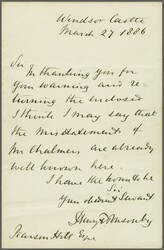 Windsor Castle
March 27 1886
Sir
In thanking you for
your warning and re-
turning the enclosed
I think I may say that
the misstatements of
Mr Chalmers are already
well known here.
I have the honor to be
Sir
Your obedient Servant
Henry F Ponsonby
Pearson Hill Esqre